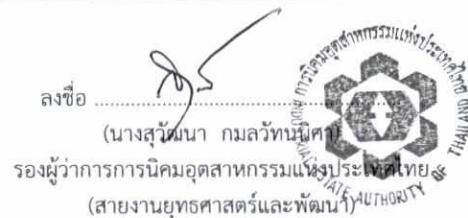 ลงชื่อ
(นางสุวัฒนา กมลวัทนนิศา)
รองผู้ว่าการการนิคมอุตสาหกรรมแห่งประเทศไทย
(สายงานยุทธศาสตร์และพัฒนา)
การนิคมอุตสาหกรรมแห่งประเทศไทย
ESTATE AUTHORITY OF THAILAND